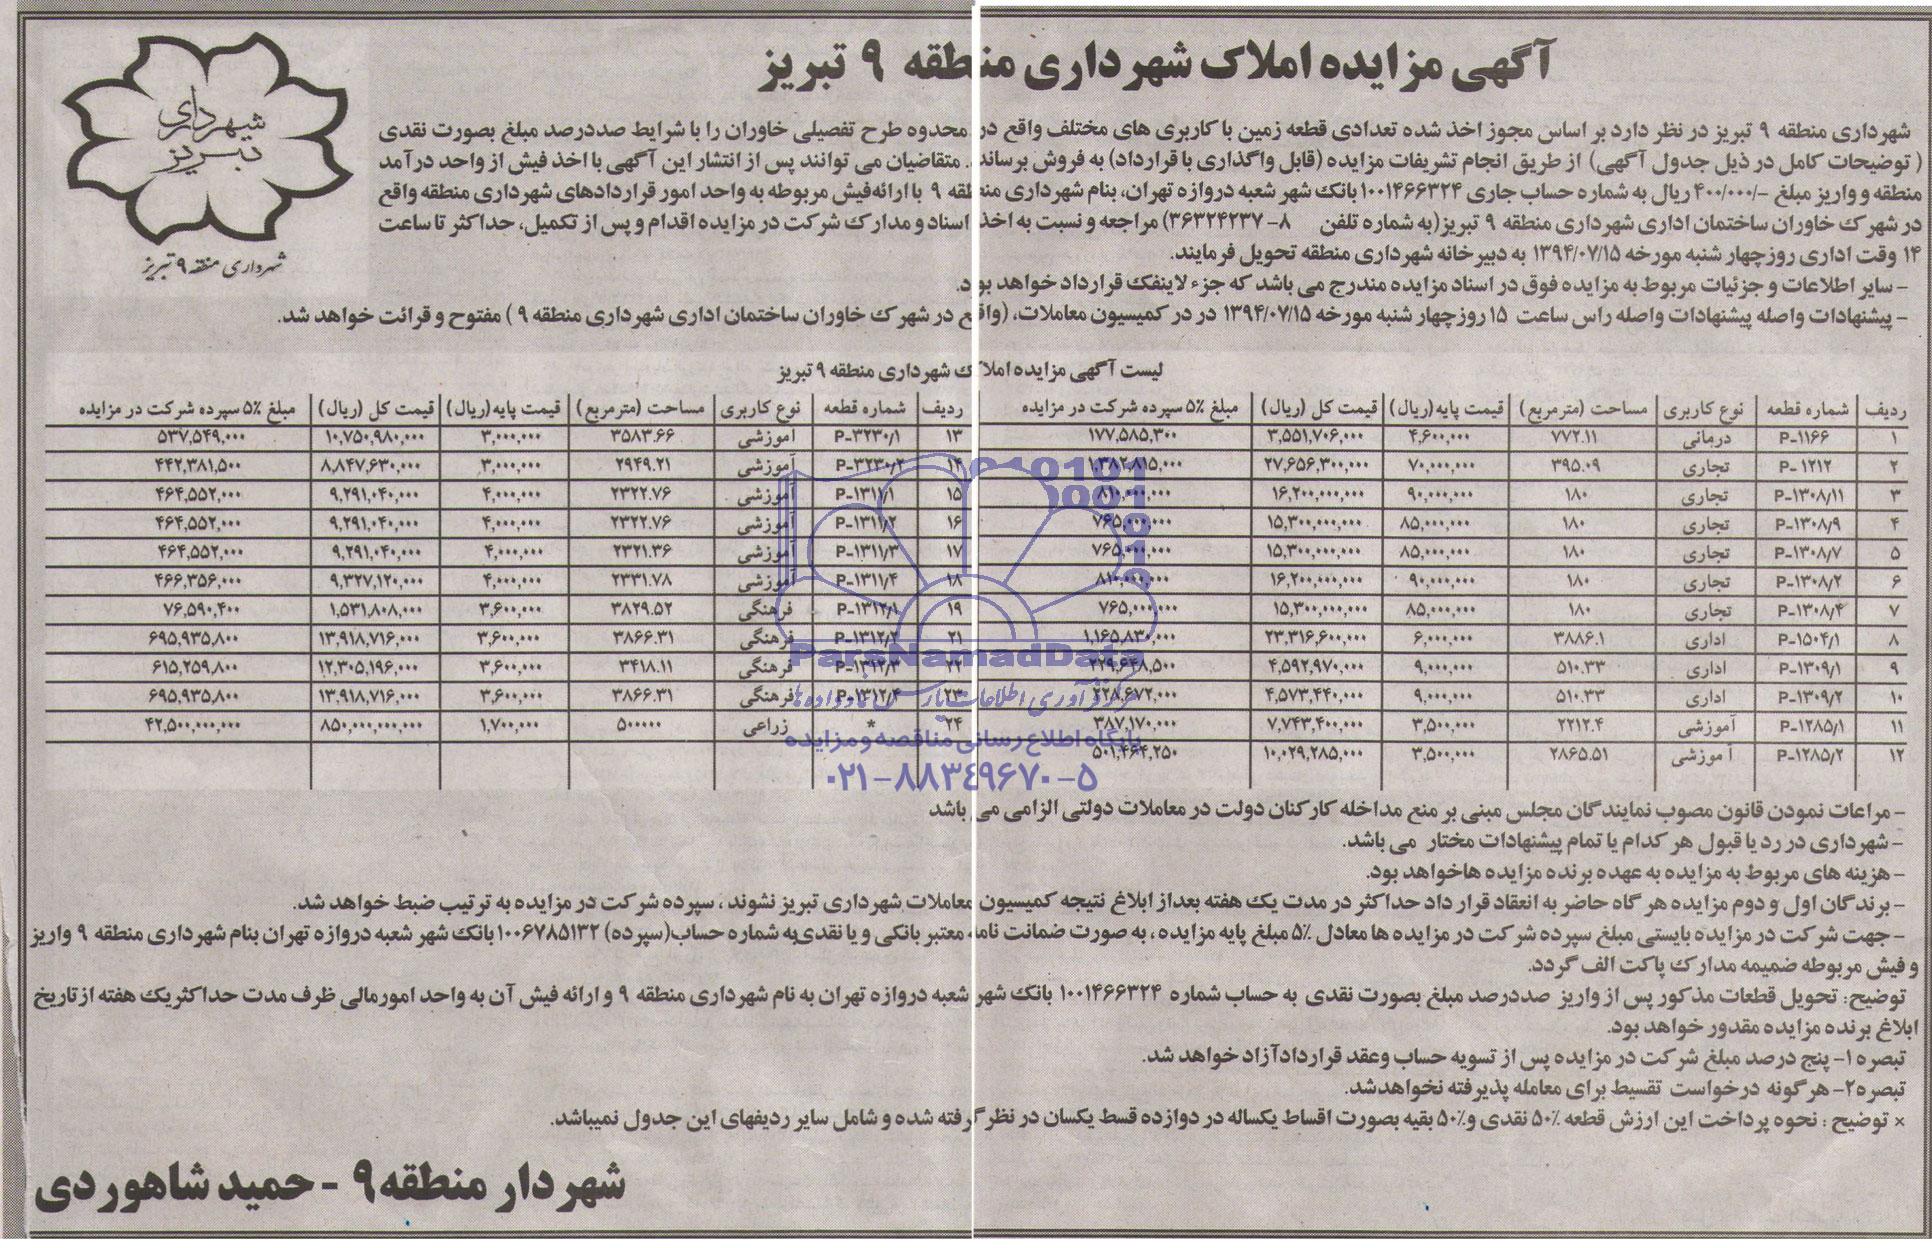 آگهی مزایده املاک شهرداری منطقه ۹ تبریز
شهرداری تبریز
شهرداری منطقه ۹ تبریز
شهرداری منطقه ۹ تبریز در نظر دارد بر اساس مجوز اخذ شده تعدادی قطعه زمین با کاربری های مختلف واقع در محدوه طرح تفصیلی خاوران را با شرایط صددرصد مبلغ بصورت نقدی
( توضیحات کامل در ذیل جدول آگهی) از طریق انجام تشریفات مزایده (قابل واگذاری با قرارداد) به فروش برساند. متقاضیان می توانند پس از انتشار این آگهی با اخذ فیش از واحد درآمد
منطقه و واریز مبلغ -/۴۰۰/۰۰۰ ریال به شماره حساب جاری ۱۰۰۱۴۶۶۳۲۴ بانک شهر شعبه دروازه تهران، بنام شهرداری منطقه ۹ با ارائه فیش مربوطه به واحد امور قراردادهای شهرداری منطقه واقع
در شهرک خاوران ساختمان اداری شهرداری منطقه ۹ تبریز(به شماره تلفن ۸-۳۶۳۲۴۲۳۷) مراجعه و نسبت به اخذ اسناد و مدارک شرکت در مزایده اقدام و پس از تکمیل، حداکثر تا ساعت
۱۴ وقت اداری روز چهار شنبه مورخه ۱۳۹۴/۰۷/۱۵ به دبیرخانه شهرداری منطقه تحویل فرمایند.
- سایر اطلاعات و جزئیات مربوط به مزایده فوق در اسناد مزایده مندرج می باشد که جزء لاینفک قرارداد خواهد بود.
- پیشنهادات واصله پیشنهادات واصله راس ساعت ۱۵ روز چهار شنبه مورخه ۱۳۹۴/۰۷/۱۵ در در کمیسیون معاملات، (واقع در شهرک خاوران ساختمان اداری شهرداری منطقه ۹ ) مفتوح و قرائت خواهد شد.
لیست آگهی مزایده املاک شهرداری منطقه ۹ تبریز
ردیف شماره قطعه نوع کاربری مساحت (مترمربع) قیمت پایه(ریال) قیمت کل (ریال) مبلغ ۵٪ سپرده شرکت در مزایده
۱ P-۱۱۶۶ درمانی ۷۷۲.۱۱ ۴,۶۰۰,۰۰۰ ۳,۵۵۱,۷۰۶,۰۰۰ ۱۷۷,۵۸۵,۳۰۰
۲ P-۱۲۱۲ تجاری ۳۹۵.۰۹ ۷۰,۰۰۰,۰۰۰ ۲۷,۶۵۶,۳۰۰,۰۰۰ ۱,۳۸۲,۸۱۵,۰۰۰
۳ P-۱۳۰۸/۱۱ تجاری ۱۸۰ ۹۰,۰۰۰,۰۰۰ ۱۶,۲۰۰,۰۰۰,۰۰۰ ۸۱۰,۰۰۰,۰۰۰
۴ P-۱۳۰۸/۹ تجاری ۱۸۰ ۸۵,۰۰۰,۰۰۰ ۱۵,۳۰۰,۰۰۰,۰۰۰ ۷۶۵,۰۰۰,۰۰۰
۵ P-۱۳۰۸/۷ تجاری ۱۸۰ ۸۵,۰۰۰,۰۰۰ ۱۵,۳۰۰,۰۰۰,۰۰۰ ۷۶۵,۰۰۰,۰۰۰
۶ P-۱۳۰۸/۲ تجاری ۱۸۰ ۹۰,۰۰۰,۰۰۰ ۱۶,۲۰۰,۰۰۰,۰۰۰ ۸۱۰,۰۰۰,۰۰۰
۷ P-۱۳۰۸/۴ تجاری ۱۸۰ ۸۵,۰۰۰,۰۰۰ ۱۵,۳۰۰,۰۰۰,۰۰۰ ۷۶۵,۰۰۰,۰۰۰
۸ P-۱۵۰۴/۱ اداری ۳۸۸۶.۱ ۶,۰۰۰,۰۰۰ ۲۳,۳۱۶,۶۰۰,۰۰۰ ۱,۱۶۵,۸۳۰,۰۰۰
۹ P-۱۳۰۹/۱ اداری ۵۱۰.۳۳ ۹,۰۰۰,۰۰۰ ۴,۵۹۲,۹۷۰,۰۰۰ ۲۲۹,۶۴۸,۵۰۰
۱۰ P-۱۳۰۹/۲ اداری ۵۱۰.۳۳ ۹,۰۰۰,۰۰۰ ۴,۵۷۳,۴۴۰,۰۰۰ ۲۲۸,۶۷۲,۰۰۰
۱۱ P-۱۲۸۵/۱ آموزشی ۲۲۱۲.۴ ۳,۵۰۰,۰۰۰ ۷,۷۴۳,۴۰۰,۰۰۰ ۳۸۷,۱۷۰,۰۰۰
۱۲ P-۱۲۸۵/۲ آموزشی ۲۸۶۵.۵۱ ۳,۵۰۰,۰۰۰ ۱۰,۰۲۹,۲۸۵,۰۰۰ ۵۰۱,۴۶۴,۲۵۰
ردیف شماره قطعه نوع کاربری مساحت (مترمربع) قیمت پایه(ریال) قیمت کل (ریال) مبلغ ۵٪ سپرده شرکت در مزایده
۱۳ P-۳۲۳۰/۱ آموزشی ۳۵۸۳.۶۶ ۳,۰۰۰,۰۰۰ ۱۰,۷۵۰,۹۸۰,۰۰۰ ۵۳۷,۵۴۹,۰۰۰
۱۴ P-۳۲۳۰/۲ آموزشی ۲۹۴۹.۲۱ ۳,۰۰۰,۰۰۰ ۸,۸۴۷,۶۳۰,۰۰۰ ۴۴۲,۳۸۱,۵۰۰
۱۵ P-۱۳۱۱/۱ آموزشی ۲۳۲۲.۷۶ ۴,۰۰۰,۰۰۰ ۹,۲۹۱,۰۴۰,۰۰۰ ۴۶۴,۵۵۲,۰۰۰
۱۶ P-۱۳۱۱/۲ آموزشی ۲۳۲۲.۷۶ ۴,۰۰۰,۰۰۰ ۹,۲۹۱,۰۴۰,۰۰۰ ۴۶۴,۵۵۲,۰۰۰
۱۷ P-۱۳۱۱/۳ آموزشی ۲۳۲۱.۳۶ ۴,۰۰۰,۰۰۰ ۹,۲۹۱,۰۴۰,۰۰۰ ۴۶۴,۵۵۲,۰۰۰
۱۸ P-۱۳۱۱/۴ آموزشی ۲۳۳۱.۷۸ ۴,۰۰۰,۰۰۰ ۹,۳۲۷,۱۲۰,۰۰۰ ۴۶۶,۳۵۶,۰۰۰
۱۹ P-۱۳۱۲/۱ فرهنگی ۳۸۲۹.۵۲ ۳,۶۰۰,۰۰۰ ۱,۵۳۱,۸۰۸,۰۰۰ ۷۶,۵۹۰,۴۰۰
۲۱ P-۱۳۱۲/۲ فرهنگی ۳۸۶۶.۳۱ ۳,۶۰۰,۰۰۰ ۱۳,۹۱۸,۷۱۶,۰۰۰ ۶۹۵,۹۳۵,۸۰۰
۲۲ P-۱۳۱۲/۳ فرهنگی ۳۴۱۸.۱۱ ۳,۶۰۰,۰۰۰ ۱۲,۳۰۵,۱۹۶,۰۰۰ ۶۱۵,۲۵۹,۸۰۰
۲۳ P-۱۳۱۲/۴ فرهنگی ۳۸۶۶.۳۱ ۳,۶۰۰,۰۰۰ ۱۳,۹۱۸,۷۱۶,۰۰۰ ۶۹۵,۹۳۵,۸۰۰
۲۴ * زراعی ۵۰۰۰۰۰ ۱,۷۰۰,۰۰۰ ۸۵۰,۰۰۰,۰۰۰,۰۰۰ ۴۲,۵۰۰,۰۰۰,۰۰۰
ParsNamadData
پایگاه اطلاع رسانی مناقصه و مزایده
۰۲۱-۸۸۳۴۹۶۷۰-۵
- مراعات نمودن قانون مصوب نمایندگان مجلس مبنی بر منع مداخله کارکنان دولت در معاملات دولتی الزامی می باشد
- شهرداری در رد یا قبول هر کدام یا تمام پیشنهادات مختار می باشد.
- هزینه های مربوط به مزایده به عهده برنده مزایده هاخواهد بود.
- برندگان اول و دوم مزایده هر گاه حاضر به انعقاد قرار داد حداکثر در مدت یک هفته بعداز ابلاغ نتیجه کمیسیون معاملات شهرداری تبریز نشوند ، سپرده شرکت در مزایده به ترتیب ضبط خواهد شد.
- جهت شرکت در مزایده بایستی مبلغ سپرده شرکت در مزایده ها معادل ۵٪ مبلغ پایه مزایده ، به صورت ضمانت نامه معتبر بانکی و یا نقدی‌به شماره حساب(سپرده) ۱۰۰۶۷۸۵۱۳۲ بانک شهر شعبه دروازه تهران بنام شهرداری منطقه ۹ واریز
و فیش مربوطه ضمیمه مدارک پاکت الف گردد.
توضیح: تحویل قطعات مذکور پس از واریز صددرصد مبلغ بصورت نقدی به حساب شماره ۱۰۰۱۴۶۶۳۲۴ بانک شهر شعبه دروازه تهران به نام شهرداری منطقه ۹ و ارائه فیش آن به واحد امورمالی ظرف مدت حداکثریک هفته از تاریخ
ابلاغ برنده مزایده مقدور خواهد بود.
تبصره ۱- پنج درصد مبلغ شرکت در مزایده پس از تسویه حساب وعقد قراردادآزاد خواهد شد.
تبصره۲- هرگونه درخواست تقسیط برای معامله پذیرفته نخواهدشد.
× توضیح : نحوه پرداخت این ارزش قطعه ۵۰٪ نقدی و۵۰٪ بقیه بصورت اقساط یکساله در دوازده قسط یکسان در نظر گرفته شده و شامل سایر ردیفهای این جدول نمیباشد.
شهردار منطقه ۹ - حمید شاهوردی